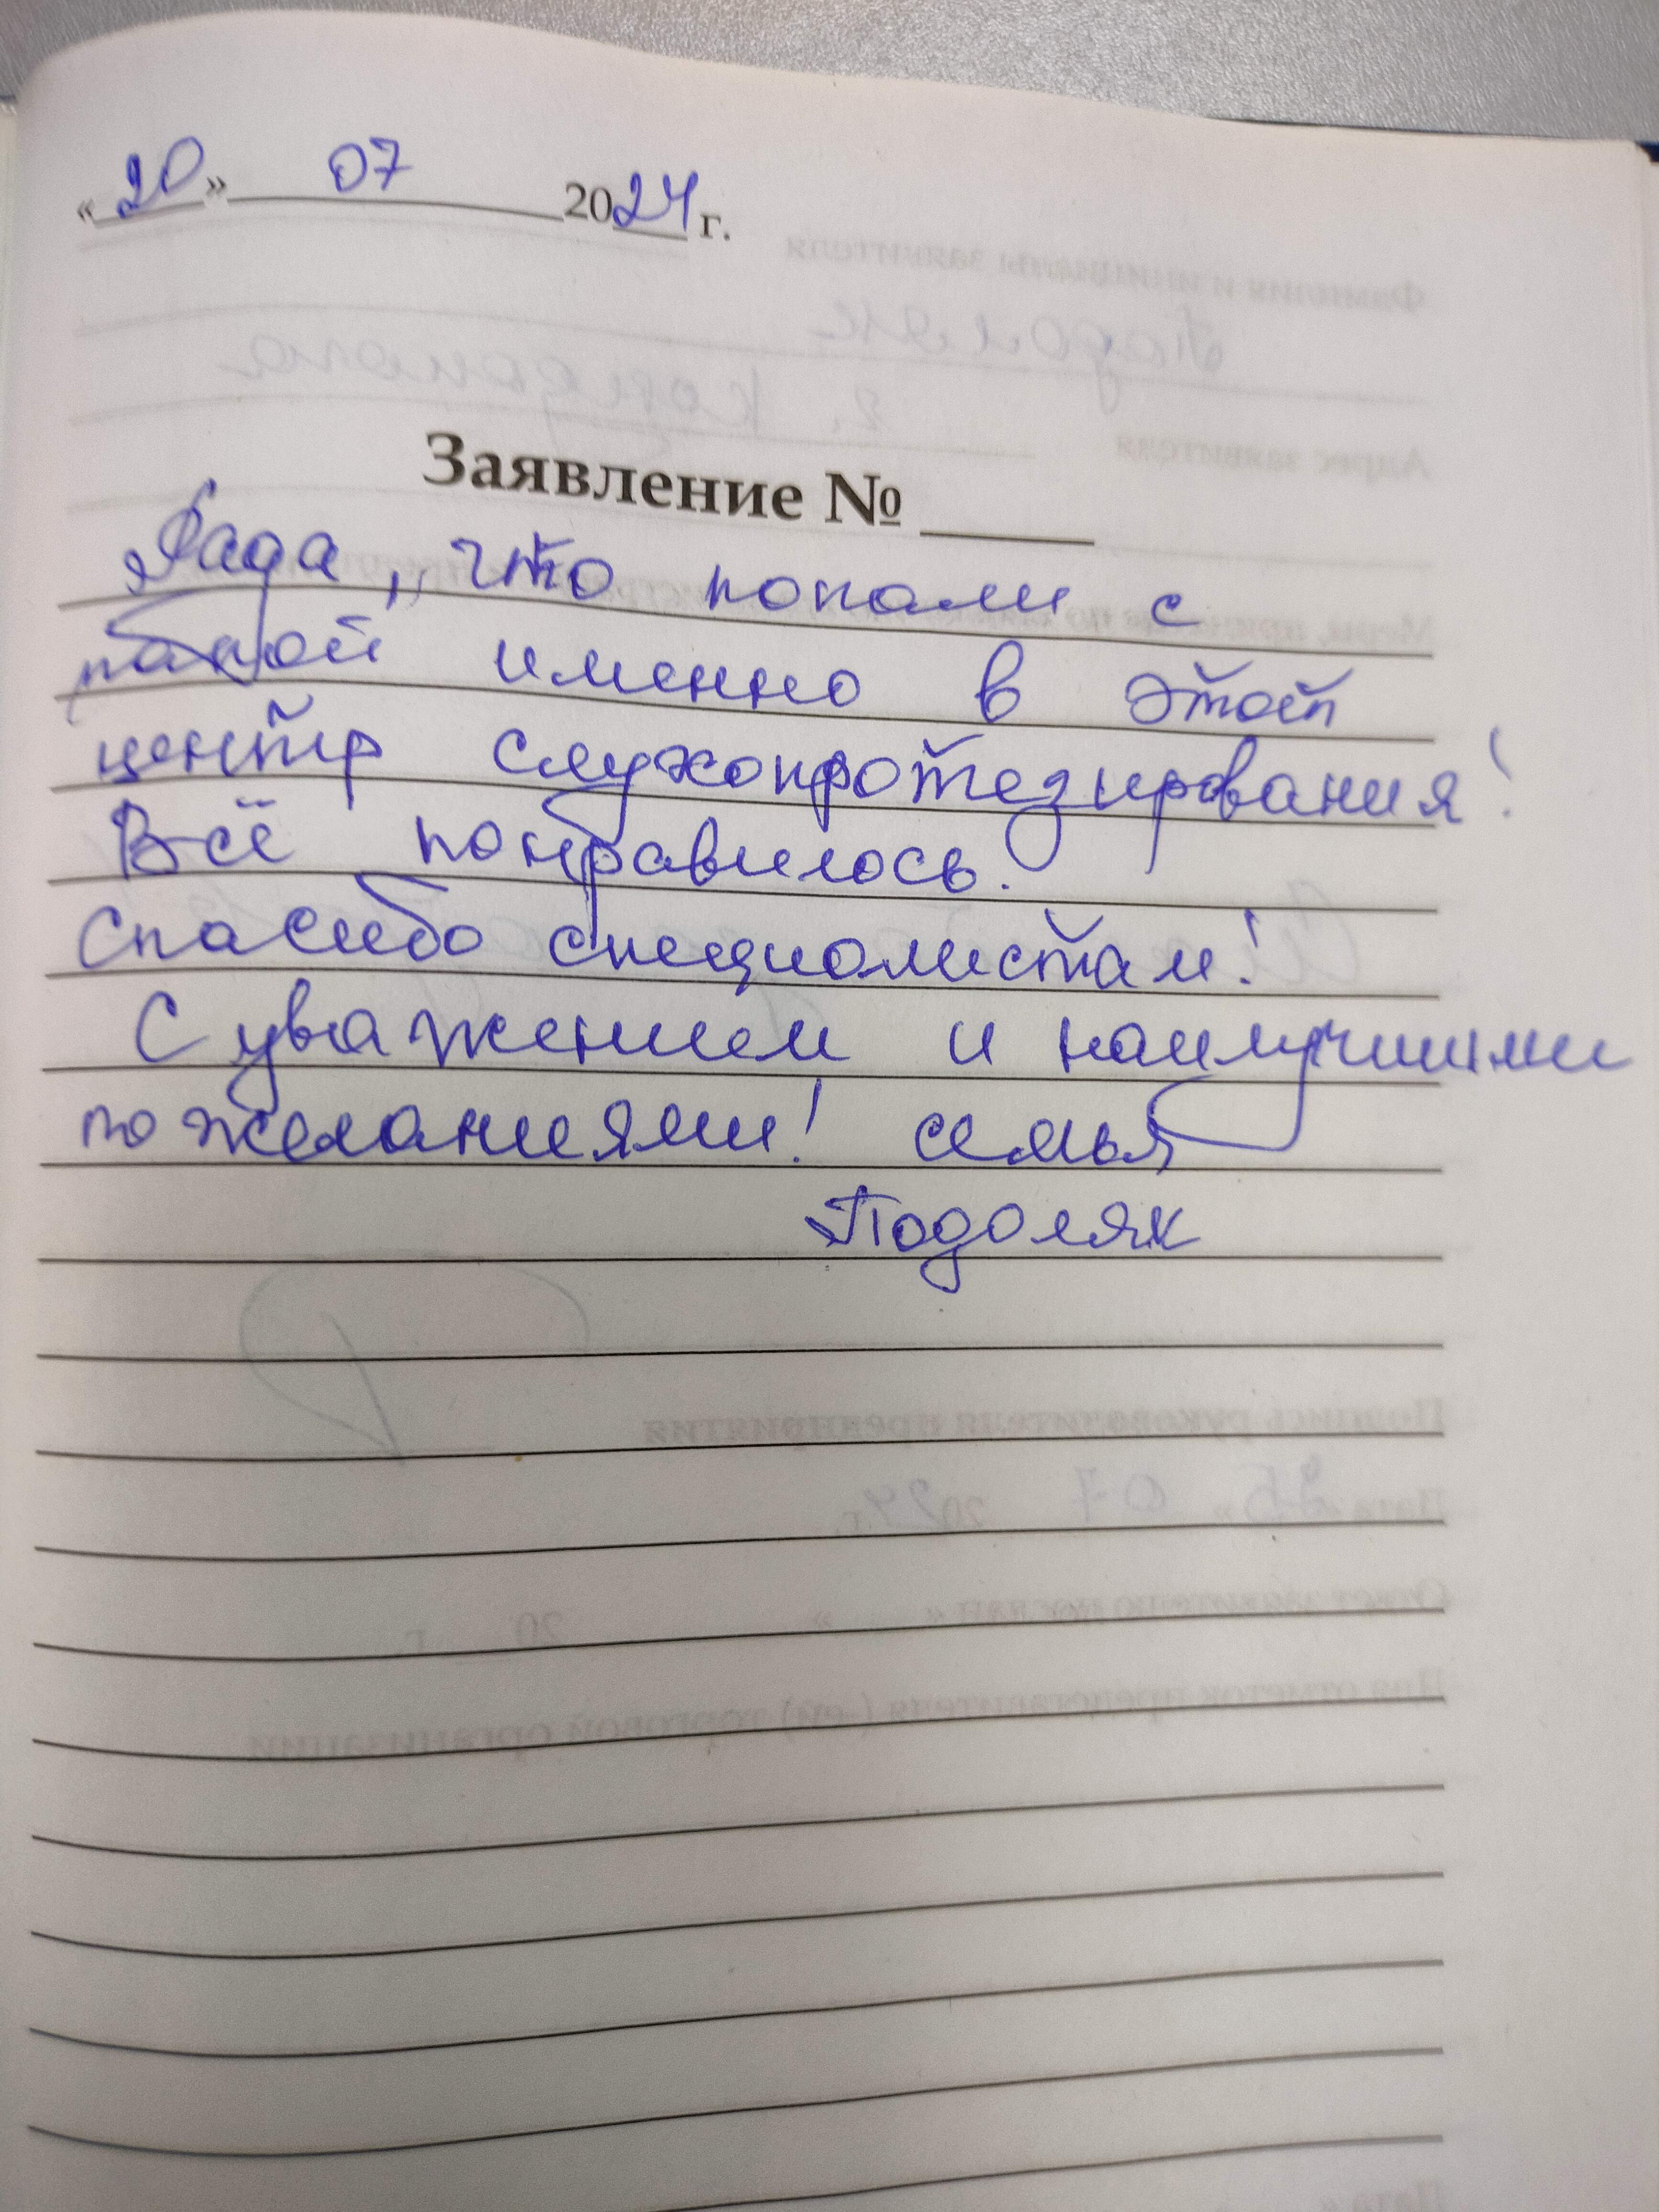 «20» 07 2024 г.
Заявление №
Рада, что попали с
папой именно в этот
центр слухопротезирования!
Всё понравилось.
Спасибо специалистам!
С уважением и наилучшими
пожеланиями! семья
Подоляк